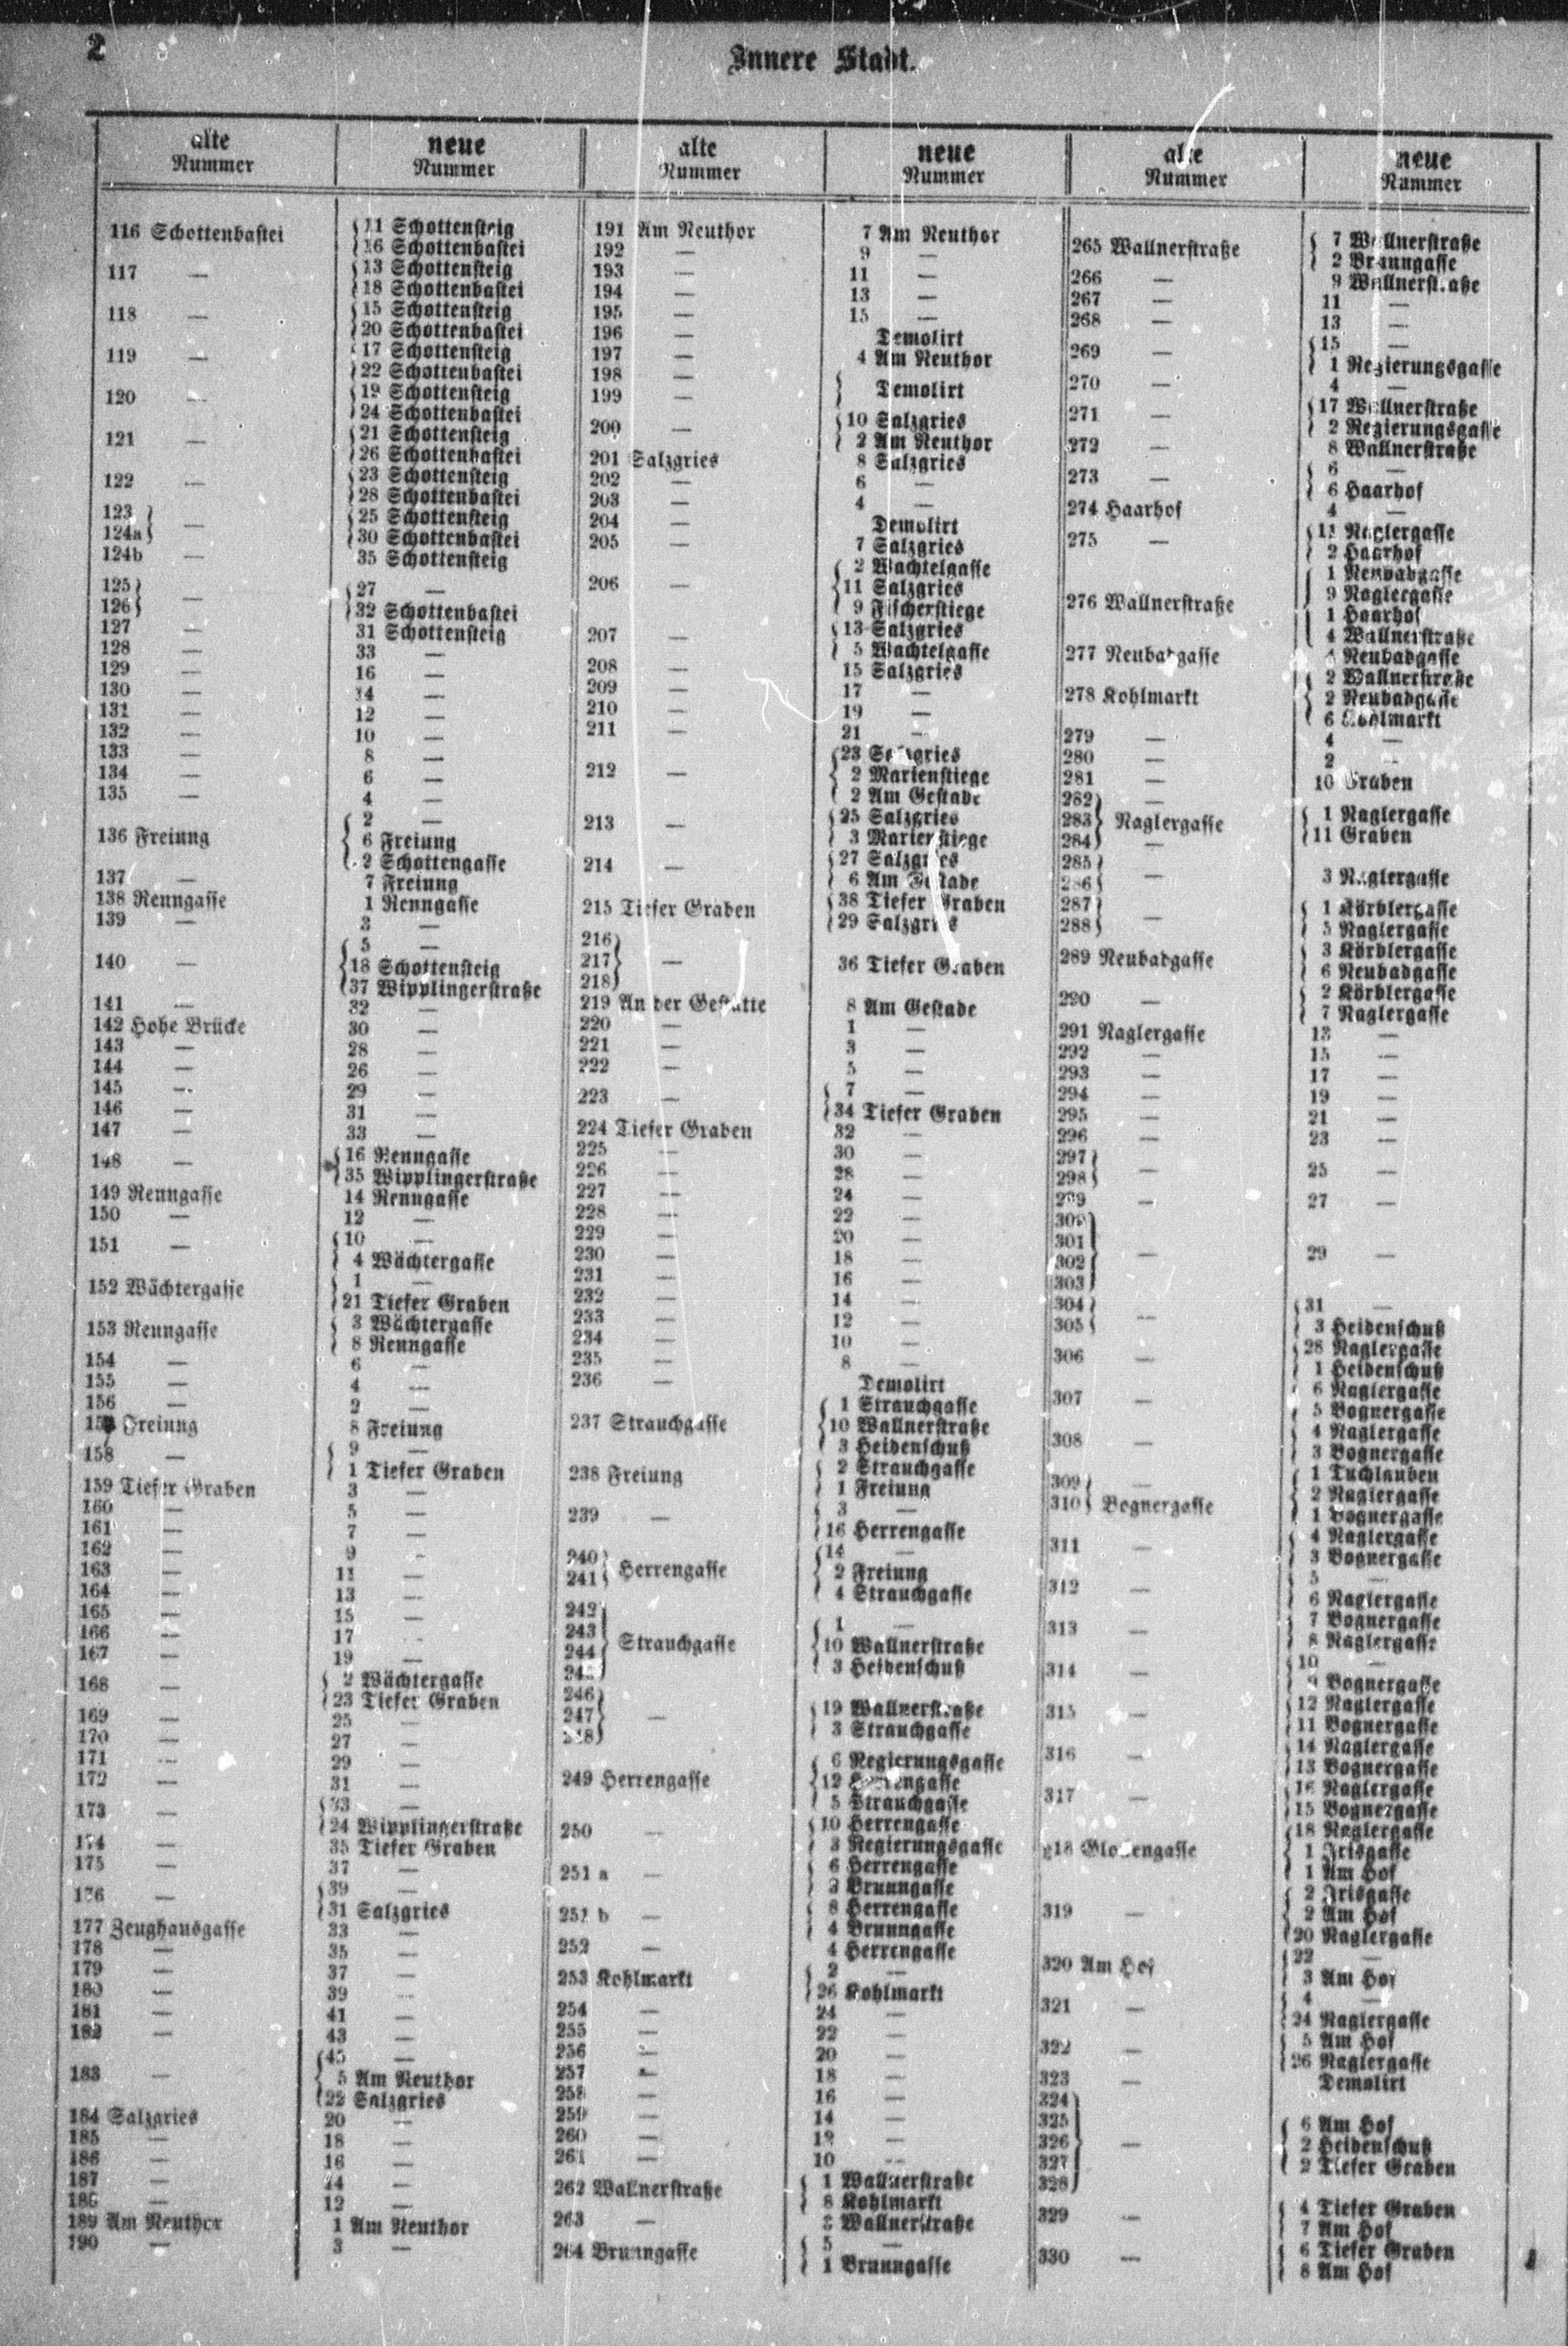 2
Innere Stadt.
alte
Nummer
116 Schottenbastei
117 —
118 —
119 —
120 —
121 —
122 —
123
124a —
124b —
125
126 —
127 —
128 —
129 —
130 —
131 —
132 —
133 —
134 —
135 —
136 Freiung
137 —
138 Renngasse
139 —
140 —
141 —
142 Hohe Brücke
143 —
144 —
145 —
146 —
147 —
148 —
149 Renngasse
150 —
151 —
152 Wächtergasse
153 Renngasse
154 —
155 —
156 —
Freiung
158 —
159 Tiefer Graben
160 —
161 —
162 —
163 —
164 —
165 —
166 —
167 —
168 —
169 —
170 —
171 —
172 —
173 —
174 —
175 —
176 —
177 Zeughausgasse
178 —
179 —
180 —
181 —
182 —
183 —
184 Salzgries
185 —
186 —
187 —
188 —
189 Am Neuthor
190 —
neue
Nummer
11 Schottensteig
16 Schottenbastei
13 Schottensteig
18 Schottenbastei
15 Schottensteig
20 Schottenbastei
17 Schottensteig
22 Schottenbastei
19 Schottensteig
24 Schottenbastei
21 Schottensteig
26 Schottenbastei
23 Schottensteig
28 Schottenbastei
25 Schottensteig
30 Schottenbastei
35 Schottensteig
27 —
32 Schottenbastei
31 Schottensteig
33 —
16 —
14 —
12 —
10 —
8 —
6 —
4 —
2 —
6 Freiung
2 Schottengasse
7 Freiung
1 Renngasse
3 —
5 —
18 Schottensteig
37 Wipplingerstraße
32 —
30 —
28 —
26 —
29 —
31 —
33 —
16 Renngasse
35 Wipplingerstraße
14 Renngasse
12 —
10 —
4 Wächtergasse
1 —
21 Tiefer Graben
3 Wächtergasse
8 Renngasse
6 —
4 —
2 —
8 Freiung
9 —
1 Tiefer Graben
3 —
5 —
7 —
9 —
11 —
13 —
15 —
17 —
19 —
2 Wächtergasse
23 Tiefer Graben
25 —
27 —
29 —
31 —
33 —
24 Wipplingerstraße
35 Tiefer Graben
37 —
39 —
31 Salzgries
33 —
35 —
37 —
39 —
41 —
43 —
45 —
5 Am Neuthor
22 Salzgries
20 —
18 —
16 —
14 —
12 —
1 Am Neuthor
3 —
alte
Nummer
191 Am Neuthor
192 —
193 —
194 —
195 —
196 —
197 —
198 —
199 —
200 —
201 Salzgries
202 —
203 —
204 —
205 —
206 —
207 —
208 —
209 —
210 —
211 —
212 —
213 —
214 —
215 Tiefer Graben
216
217 —
218
219 An der Gestätte
220 —
221 —
222 —
223 —
224 Tiefer Graben
225 —
226 —
227 —
228 —
229 —
230 —
231 —
232 —
233 —
234 —
235 —
236 —
237 Strauchgasse
238 Freiung
239 —
240
241 Herrengasse
242
243
244 Strauchgasse
245
246
247 —
248
249 Herrengasse
250 —
251 a —
251 b —
252 —
253 Kohlmarkt
254 —
255 —
256 —
257 —
258 —
259 —
260 —
261 —
262 Wallnerstraße
263 —
264 Brunngasse
neue
Nummer
7 Am Neuthor
9 —
11 —
13 —
15 —
Demolirt
4 Am Neuthor
Demolirt
10 Salzgries
2 Am Neuthor
8 Salzgries
6 —
4 —
Demolirt
7 Salzgries
2 Wachtelgasse
11 Salzgries
9 Fischerstiege
13 Salzgries
5 Wachtelgasse
15 Salzgries
17 —
19 —
21 —
23 Salzgries
2 Marienstiege
2 Am Gestade
25 Salzgries
3 Marienstiege
27 Salzgries
6 Am Gestade
38 Tiefer Graben
29 Salzgries
36 Tiefer Graben
8 Am Gestade
1 —
3 —
5 —
7 —
34 Tiefer Graben
32 —
30 —
28 —
24 —
22 —
20 —
18 —
16 —
14 —
12 —
10 —
8 —
Demolirt
1 Strauchgasse
10 Wallnerstraße
3 Heidenschuß
2 Strauchgasse
1 Freiung
3 —
16 Herrengasse
14 —
2 Freiung
4 Strauchgasse
1 —
10 Wallnerstraße
3 Heidenschuß
19 Wallnerstraße
3 Strauchgasse
6 Regierungsgasse
12 Herrengasse
5 Strauchgasse
10 Herrengasse
3 Regierungsgasse
6 Herrengasse
Brunngasse
8 Herrengasse
4 Brunngasse
4 Herrengasse
2 —
26 Kohlmarkt
24 —
22 —
20 —
18 —
16 —
14 —
12 —
10 —
1 Wallnerstraße
8 Kohlmarkt
3 Wallnerstraße
5 —
1 Brunngasse
alte
Nummer
265 Wallnerstraße
266 —
267 —
268 —
269 —
270 —
271 —
272 —
273 —
274 Haarhof
275 —
276 Wallnerstraße
277 Neubadgasse
278 Kohlmarkt
279 —
280 —
281 —
282 —
283 Naglergasse
284 —
285
286 —
287
288 —
289 Neubadgasse
290 —
291 Naglergasse
292 —
293 —
294 —
295 —
296 —
297
298 —
299 —
300
301
302 —
303
304
305 —
306 —
307 —
308 —
309 —
310 Bognergasse
311 —
312 —
313 —
314 —
315 —
316 —
317 —
318 Glockengasse
319 —
320 Am Hof
321 —
322 —
323 —
324
325
326 —
327
328
329 —
330 —
neue
Nummer
7 Wallnerstraße
2 Brunngasse
9 Wallnerstraße
11 —
13 —
15 —
1 Regierungsgasse
4 —
17 Wallnerstraße
2 Regierungsgasse
8 Wallnerstraße
6 —
6 Haarhof
4 —
11 Naglergasse
2 Haarhof
1 Neubadgasse
9 Naglergasse
1 Haarhof
4 Wallnerstraße
4 Neubadgasse
2 Wallnerstraße
2 Neubadgasse
6 Kohlmarkt
4 —
2 —
10 Graben
1 Naglergasse
11 Graben
3 Naglergasse
1 Körblergasse
5 Naglergasse
3 Körblergasse
6 Neubadgasse
2 Körblergasse
7 Naglergasse
13 —
15 —
17 —
19 —
21 —
23 —
25 —
27 —
29 —
31 —
3 Heidenschuß
28 Naglergasse
1 Heidenschuß
6 Naglergasse
5 Bognergasse
4 Naglergasse
3 Bognergasse
1 Tuchlauben
2 Naglergasse
1 Bognergasse
4 Naglergasse
3 Bognergasse
5 —
6 Naglergasse
7 Bognergasse
8 Naglergasse
10 —
9 Bognergasse
12 Naglergasse
11 Bognergasse
14 Naglergasse
13 Bognergasse
16 Naglergasse
15 Bognergasse
18 Naglergasse
1 Irisgasse
1 Am Hof
2 Irisgasse
2 Am Hof
20 Naglergasse
22 —
3 Am Hof
4 —
24 Naglergasse
5 Am Hof
26 Naglergasse
Demolirt
6 Am Hof
2 Heidenschuß
2 Tiefer Graben
4 Tiefer Graben
7 Am Hof
6 Tiefer Graben
8 Am Hof